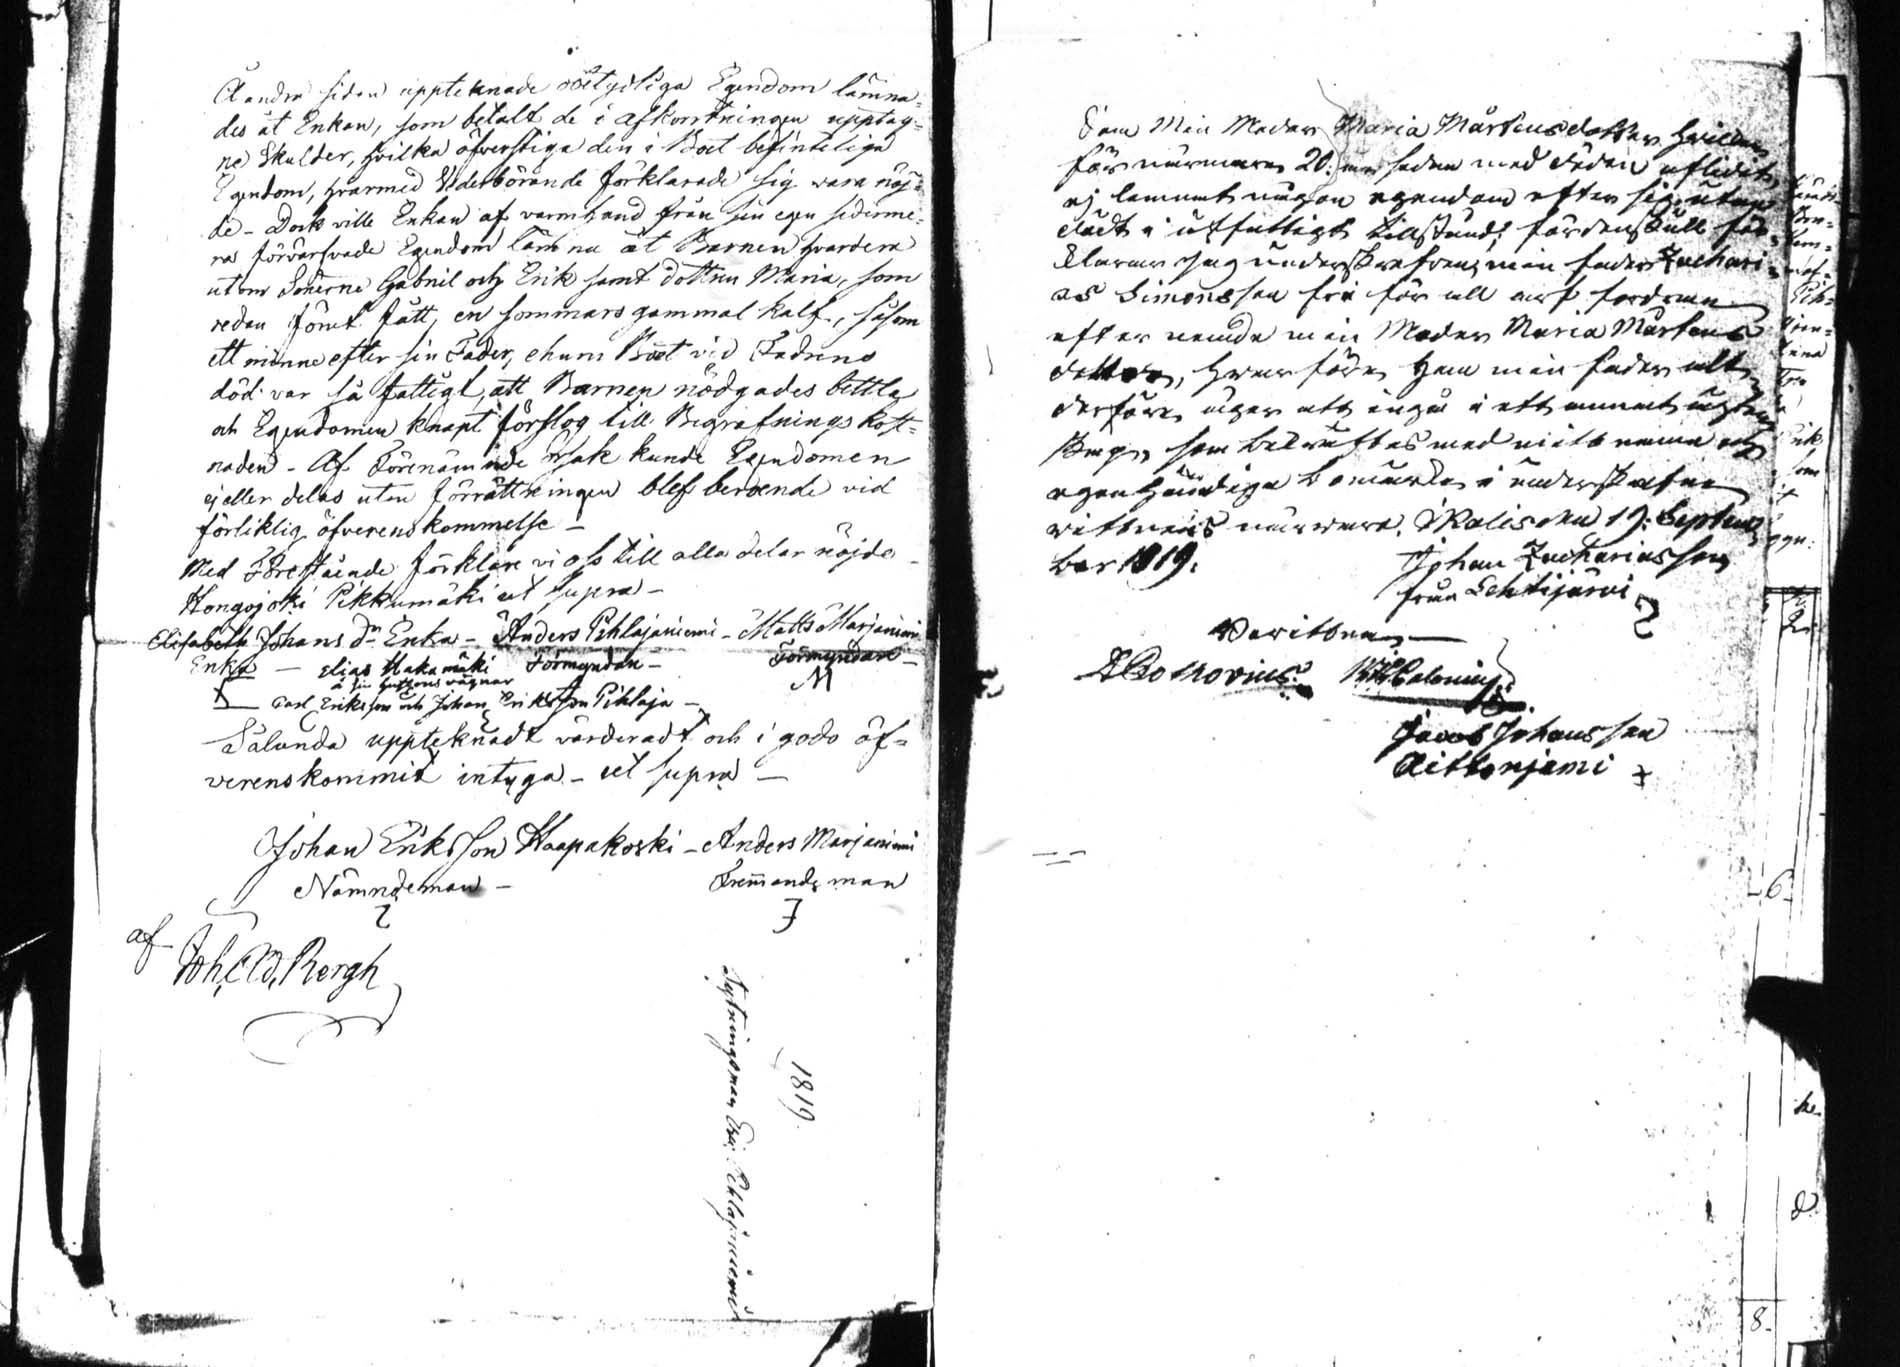 Å andra sidan uppteknade obetydliga Egendom lämna=
des åt Enkan, som betalt de i afkortningen upptag=
ne Skulder, hvilka öfverstiga den i Boet befinteliga
Egendom, hvarmed Vederbörande förklarade sig vara nöj=
de - Dock ville Enkan af varm hand från sin egen sederme=
ra förvärfvade Egendom lämna åt Barnen hvardera
utom Sönerne Gabriel och Erik samt dottren Maria, som
redan förut fått, en sommars gammal kalf, såsom
ett minne efter sin Fader, ehuru Boet vid Fadrens
död var så fattigt, att Barnen nödgades bettla
och Egendomen knapt förslog till Begrafnings kost=
naden - Af Förenämnde orsak kunde Egendomen
ej eller delas utan förrättningen blef beroende vid
förliklig öfverenskommelse -
Med Förestående förklare vi oss till alla delar nöjde -
Kongojoki Pikkumäki ut supra -
Elisabeth Johans dr Enka - Anders Pihlajaniemi - Matts Marjaniemi
Enka - Elias Hakamäki Förmyndare - Förmyndare -
å sin hustrus vägnar M
Carl Eriksson och Johan Eriksson Pihlaja -
Sålunda uppteknadt värderadt och i godo öf=
verenskommit intyga - ut supra -
Johan Eriksson Haapakoski - Anders Marjaniemi
Nämndeman - Fremmande man
af
Joh. Ad. Bergh
1819
Sytningsman Pihlajaniemi
Som Min Moder Maria Mårtensdotter hvilken
för närmare 20: år sedan med döden aflidit,
ej lemnat någon egendom efter sig, utan
dödt i utfattigt tillstånd; fördenskull för=
klarar Jag underskrefven, min fader Zachari=
as Simonsson fri för all arf fordran
efter nemde min Moder Maria Mårtens
dotter, hvarföre Han min fader allt
derföre äger att ingå i ett annat ägten
skap, som bekräftas med mitt namn och
egenhändiga bomärke i underskrefne
vittnens närvaro. Kalis den 19: Septem
ber 1819.
Johan Zachariasson
från Lehtijärvi
Vavittna
Jacob Johansson
Aittoniemi
6
8